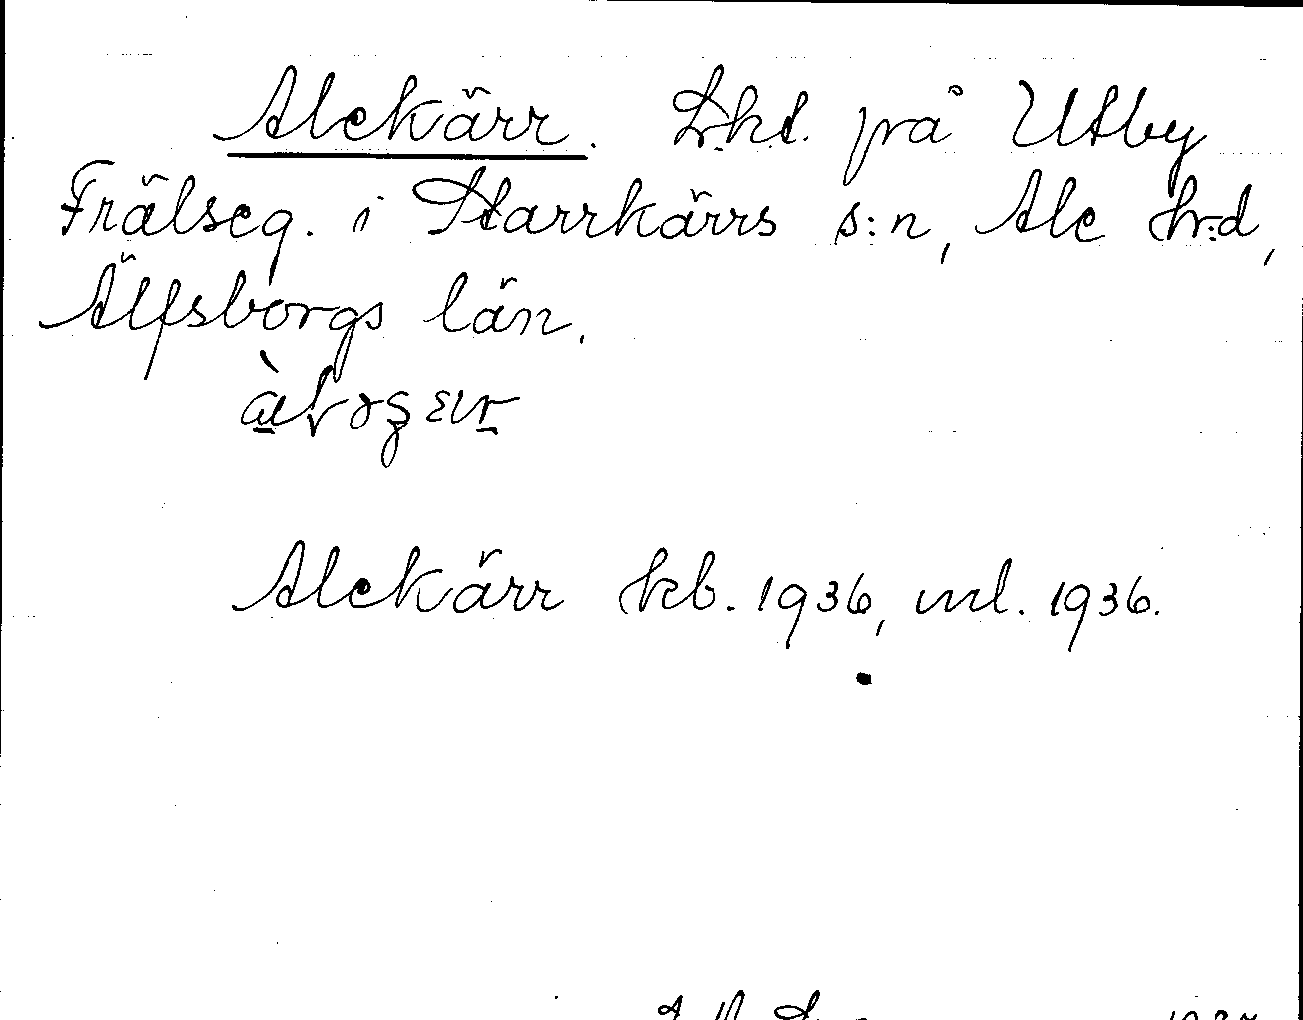 Alekärr. Lht. på Utby
Frälseg. i Starrkärrs s:n, Ale hr:d,
Älfsborgs län.
Alekärr kb. 1936, ml. 1936.